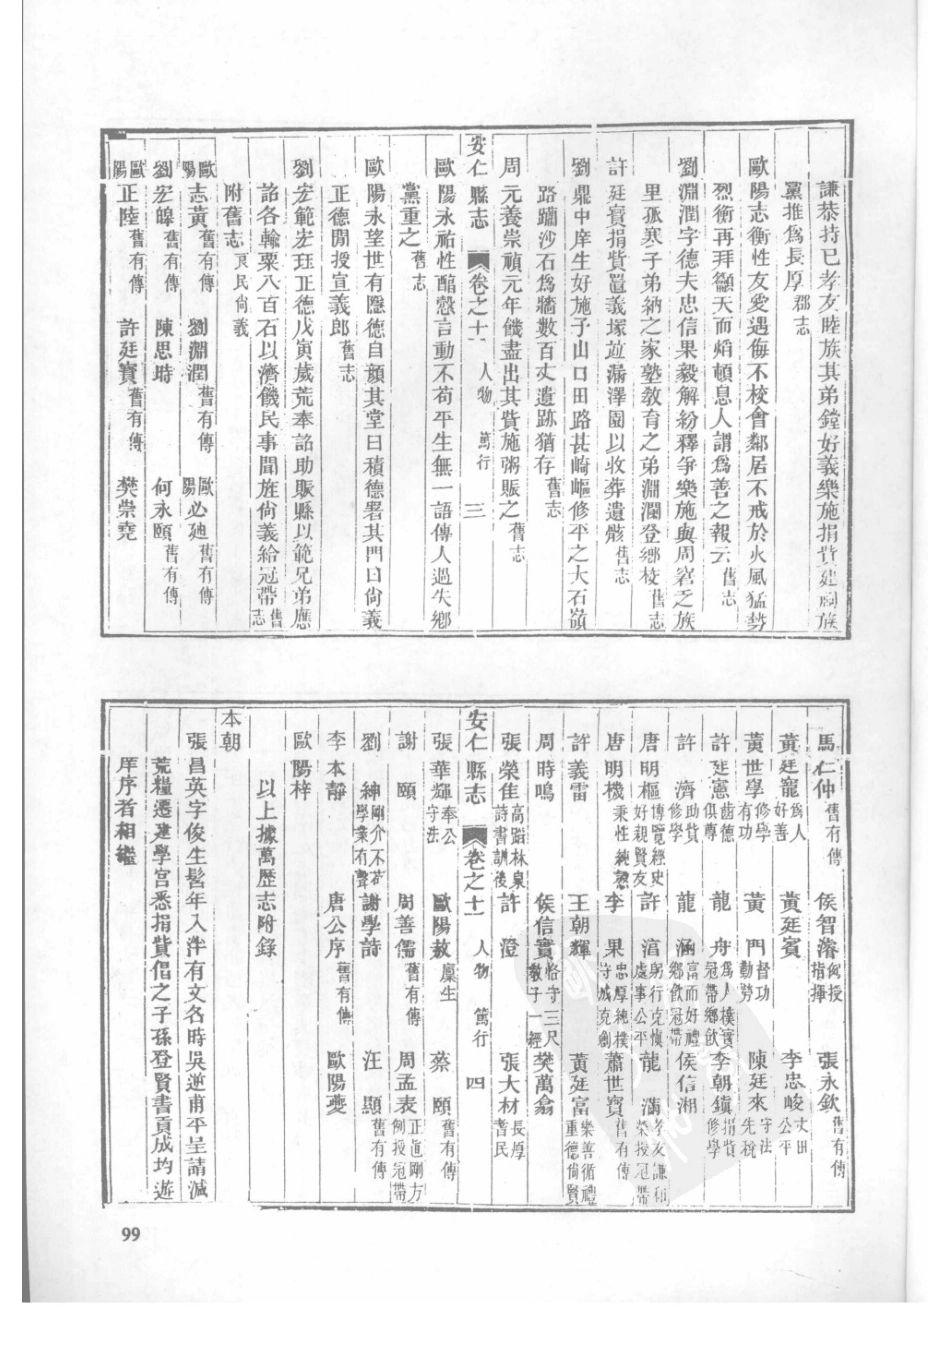 謙恭持已孝友睦族其弟鏜好義樂施捐貲建祠族
黨推爲長厚郡志
歐陽志衡性友愛遇侮不校會鄰居不戒於火風猛勢
烈衡再拜籲天而熖頓息人謂爲善之報云舊志
劉淵潤字德夫忠信果毅解紛釋爭樂施與周窘乏族
里孤寒子弟納之家塾敎育之弟淵瀾登鄉校舊志
許廷寶捐貲置義塚並漏澤園以收葬遺骸舊志
劉鼎中庠生好施子山口田路甚崎嶇修平之大石嶺
路躋沙石爲牆數百丈遺跡猶存舊志
周元養崇禎元年饑盡出其貲施粥賑之舊志
安仁縣志 卷之十一 人物 篤行 三
歐陽永祐性醕慤言動不苟平生無一語傳人過失鄉
黨重之舊志
歐陽永望世有隱德自顏其堂曰積德署其門曰尙義
正德間授宣義郎舊志
劉宏範宏玨正德戊寅歲荒奉詔助賑縣以範兄弟應
詔各輸粟八百石以濟饑民事聞旌尙義給冠帶舊志
附舊志良民尙義
歐陽志黃舊有傳 劉淵潤舊有傳 歐陽必廸舊有傳
劉宏皞舊有傳 陳思時 何永頤舊有傳
歐陽正陸舊有傳 許廷寶舊有傳 樊崇堯
馬仁仲舊有傳 侯智濬例授指揮 張永欽舊有傳
黃廷寵爲人好善 黃廷賓 李忠峻丈田公平
黃世學修學有功 黃門督功勤勞 陳廷來守法先稅
許廷憲齒德俱專 龍舟爲人樸實冠帶鄉飮 李朝鎮捐貲修學
許濟助貲修學 龍涵富而好禮鄉飮冠帶 侯信湘
唐明樞博覽經史好親賢友 許湻躬行克愼處事公平 龍滿孝友謙和榮授冠帶
唐明機秉性純慤 李果忠厚純樸守城克剿 蕭世寶舊有傳
許義雷 王朝輝 黃廷富樂善循禮重德尙賢
周時鳴 侯信實恪守三尺敎子一經 樊萬翕
張榮隹高蹈林泉詩書訓後 許澄 張大材長厚耆民
安仁縣志 卷之十一 人物 篤行 四
張華輝奉公守法 歐陽敖廩生 蔡頤舊有傳
謝頤 周善儒舊有傳 周孟表正直剛方例授冠帶
劉紳剛介不若學業有聲 謝學詩 汪顯舊有傳
李本靜 唐公序舊有傳 歐陽夔
歐陽梓
以上據萬歷志附錄
本朝
張昌英字俊生髫年入泮有文名時吳逆甫平呈請減
荒糧遷建學宮悉捐貲倡之子孫登賢書貢成均遊
庠序者相繼
99